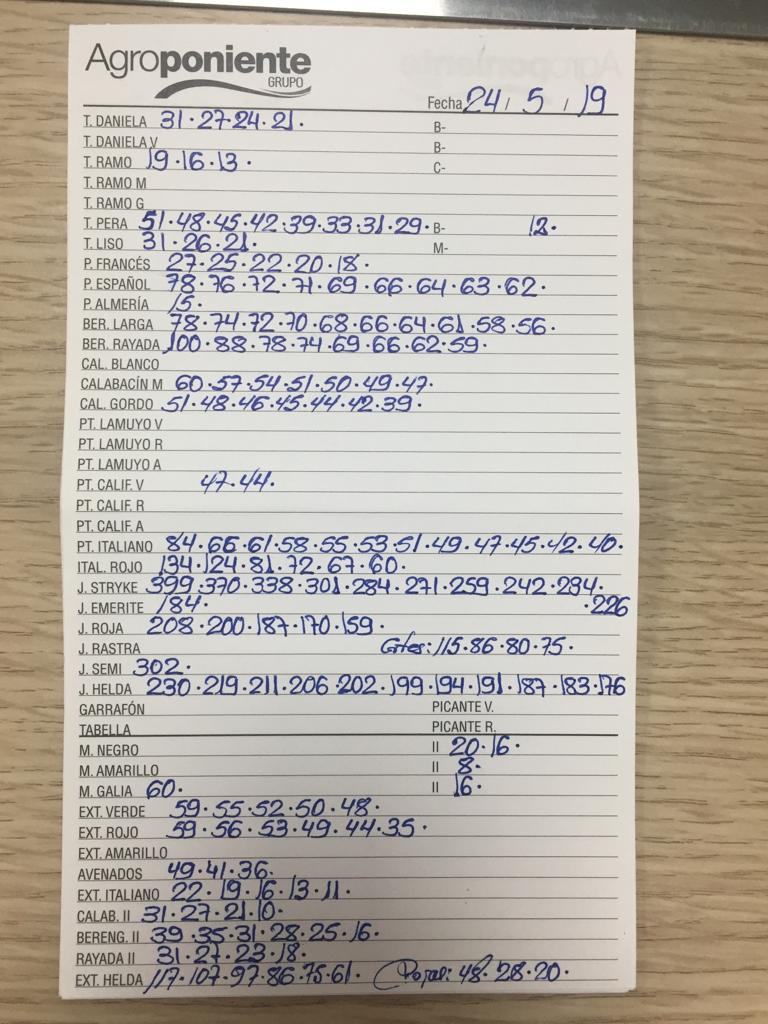 Agroponiente
GRUPO
Fecha 24 / 5 / 19
T. DANIELA 31·27·24·21· B-
T. DANIELA V B-
T. RAMO 19·16·13· C-
T. RAMO M
T. RAMO G
T. PERA 51·48·45·42·39·33·31·29· B- 12·
T. LISO 31·26·21· M-
P. FRANCÉS 27·25·22·20·18·
P. ESPAÑOL 78·76·72·71·69·66·64·63·62·
P. ALMERÍA 15·
BER. LARGA 78·74·72·70·68·66·64·61·58·56·
BER. RAYADA 100·88·78·74·69·66·62·59·
CAL. BLANCO
CALABACÍN M 60·57·54·51·50·49·47·
CAL. GORDO 51·48·46·45·44·42·39·
PT. LAMUYO V
PT. LAMUYO R
PT. LAMUYO A
PT. CALIF. V 47·44·
PT. CALIF. R
PT. CALIF. A
PT. ITALIANO 84·66·61·58·55·53·51·49·47·45·42·40·
ITAL. ROJO 134·124·81·72·67·60·
J. STRYKE 399·370·338·301·284·271·259·242·234·
J. EMERITE 184· ·226
J. ROJA 208·200·187·170·159·
J. RASTRA 115·86·80·75·
J. SEMI 302·
J. HELDA 230·219·211·206·202·199·194·191·187·183·176
GARRAFÓN PICANTE V.
TABELLA PICANTE R.
M. NEGRO II 20·16·
M. AMARILLO II 8·
M. GALIA 60· II 16·
EXT. VERDE 59·55·52·50·48·
EXT. ROJO 59·56·53·49·44·35·
EXT. AMARILLO
AVENADOS 49·41·36·
EXT. ITALIANO 22·19·16·13·11·
CALAB. II 31·27·21·10·
BERENG. II 39·35·31·28·25·16·
RAYADA II 31·27·23·18·
EXT. HELDA 117·107·97·86·75·61· 48·28·20·